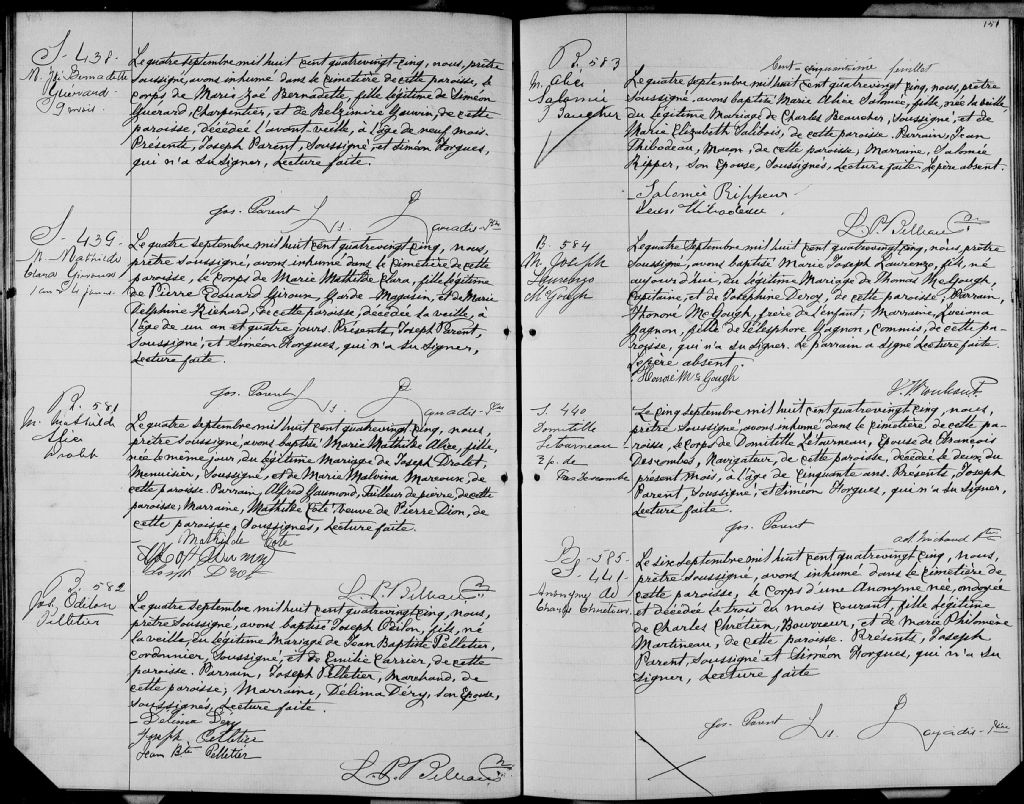 S. 438.
M. Z. Bernadette
Guérard
9 mois
Le quatre septembre mil huit cent quatrevingt-cinq, nous, prêtre
soussigné, avons inhumé dans le cimetière de cette paroisse, le
corps de Marie Zoé Bernadette, fille légitime de Siméon
Guérard, Charpentier, et de Belzémire Gauvin, de cette
paroisse, décédée l'avant-veille, à l'âge de neuf mois.
Présents, Joseph Parent, Soussigné et Siméon Horgues,
qui n'a su signer, Lecture faite.
Jos. Parent
S. 439.
M. Mathilde
Clara Giroux
1 an & 4 jours.
Le quatre septembre mil huit cent quatrevingt cinq, nous,
prêtre soussigné, avons inhumé dans le cimetière de cette
paroisse, le corps de Marie Mathilde Clara, fille légitime
de Pierre Edouard Giroux, Garde-Magasin, et de Marie
Delphine Richard, de cette paroisse, décédée la veille, à
l'âge de un an et quatre jours. Présents, Joseph Parent,
soussigné, et Siméon Horgues, qui n'a su signer,
Lecture faite.
Jos. Parent
B. 581
M. Mathilde
Alice
Drolet
Le quatre septembre mil huit cent quatrevingt cinq, nous,
prêtre soussigné, avons baptisé Marie Mathilde Alice, fille,
née le même jour, du légitime Mariage de Joseph Drolet,
Menuisier, Soussigné, et de Marie Malvina Marcoux, de
cette paroisse. Parrain, Alfred Gaumond, Tailleur de pierre, de cette
paroisse; Marraine, Mathilde Coté veuve de Pierre Dion, de
cette paroisse, Soussignés, Lecture faite.
Mathilde Cote
Joseph Drolet
B. 582
Jos. Odilon
Pelletier
Le quatre septembre mil huit cent quatrevingt cinq, nous,
prêtre soussigné, avons baptisé Joseph Odilon, fils, né
la veille, du légitime Mariage de Jean Baptiste Pelletier,
cordonnier, Soussigné, et de Emilie Carrier, de cette
paroisse. Parrain, Joseph Pelletier, Marchand, de
cette paroisse; Marraine, Délima Déry, son Epouse,
soussignés, Lecture faite.
Délima Déry
Joseph Pelletier
Jean Bte Pelletier
151
Cent-cinquantième feuillet
B. 583
M. Alice
Salomée
Le quatre septembre mil huit cent quatrevingt cinq, nous, prêtre
Soussigné, avons baptisé Marie Alice Salomée, fille, née la veille
du légitime Mariage de Charles Beaucher, Soussigné, et de
Marie Elizabeth Salibois, de cette paroisse. Parrain, Jean
Thibodeau, Maçon, de cette paroisse; Marraine, Salomée
Ripper, son Epouse, Soussignés, Lecture faite. Le père absent.
Salomée Rippeur
B. 584
M. Joseph
Laurenzo
McGough
Le quatre septembre mil huit cent quatrevingt cinq, nous, prêtre
Soussigné, avons baptisé Marie Joseph Laurenzo, fils, né
aujourd'hui, du légitime Mariage de Thomas McGough,
Capitaine, et de Josephine Deroy, de cette paroisse. Parrain,
Honoré McGough, frère de l'enfant; Marraine, Luciana
Gagnon, fille de Télesphore Gagnon, Commis, de cette pa-
roisse, qui n'a su signer. Le parrain a signé Lecture faite.
Le père absent.
Honoré Mc Gough
S. 440
Domitille
Letourneau
Ep. de
Frs Descombe
Le cinq septembre mil huit cent quatrevingt cinq, nous,
prêtre Soussigné, avons inhumé dans le cimetière, de cette pa-
roisse, le Corps de Domitille Letourneau, Epouse de François
Descombes, Navigateur, de cette paroisse, décédée le deux du
présent mois, à l'âge de cinquante ans. Présents, Joseph
Parent, Soussigné, et Siméon Horgues, qui n'a su signer,
Lecture faite.
Jos. Parent
B. 585.
S. 441.
Anonyme de
Charles Chretien
Le six septembre mil huit cent quatrevingt cinq, nous,
prêtre Soussigné, avons inhumé dans le cimetière de
cette paroisse, le corps d'une Anonyme née, ondoyée
et décédée le trois du mois courant, fille légitime
de Charles Chrétien, Bouvreur, et de Marie Philomène
Martineau, de cette paroisse. Présents, Joseph
Parent, Soussigné et Siméon Horgues, qui n'a su
signer, Lecture faite
Jos. Parent